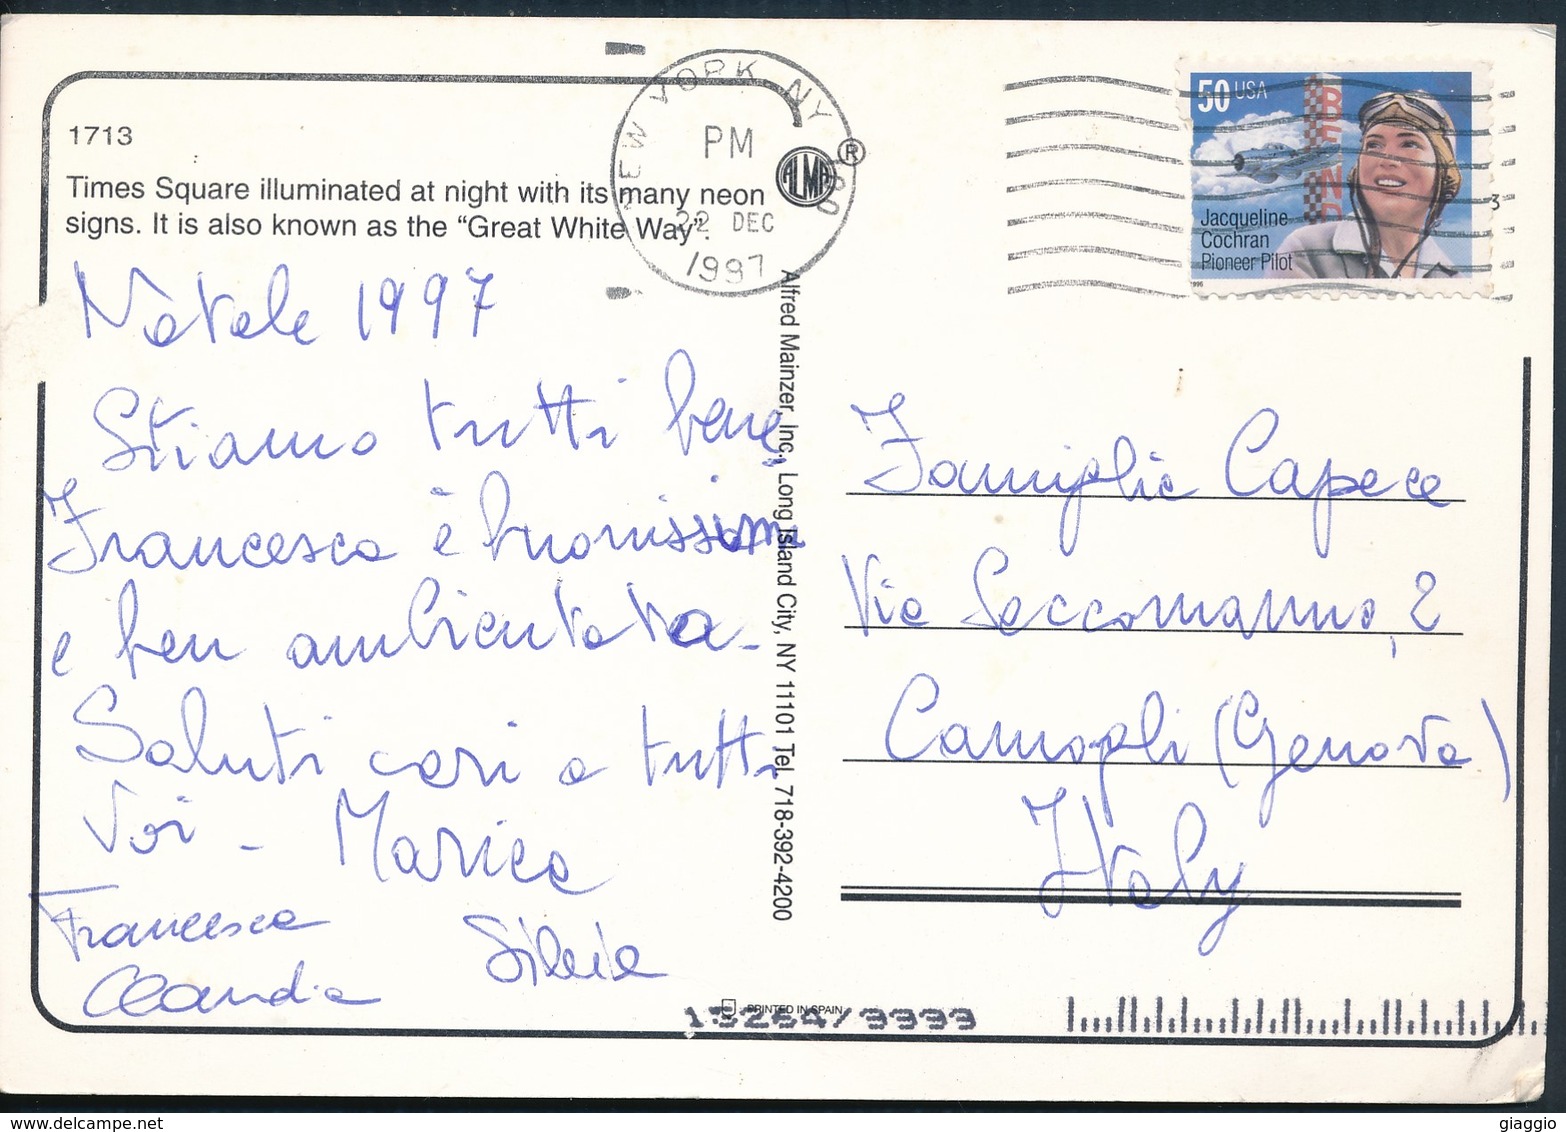 1713
Times Square illuminated at night with its many neon
signs. It is also known as the “Great White Way”.
NEW YORK NY
PM
22 DEC
1997
ALMA
®
50 USA
BENDIX
Jacqueline
Cochran
Pioneer Pilot
1996
Natale 1997
Stiamo tutti bene,
Francesca è buonissima
e ben ambientata -
Saluti cari a tutti
Voi - Marica
Francesca
Silvia
Claudia
Alfred Mainzer, Inc., Long Island City, NY 11101 Tel. 718-392-4200
Famiglia Capece
Via Seccomanno, 2
Camogli (Genova)
Italy
PRINTED IN SPAIN
giaggio